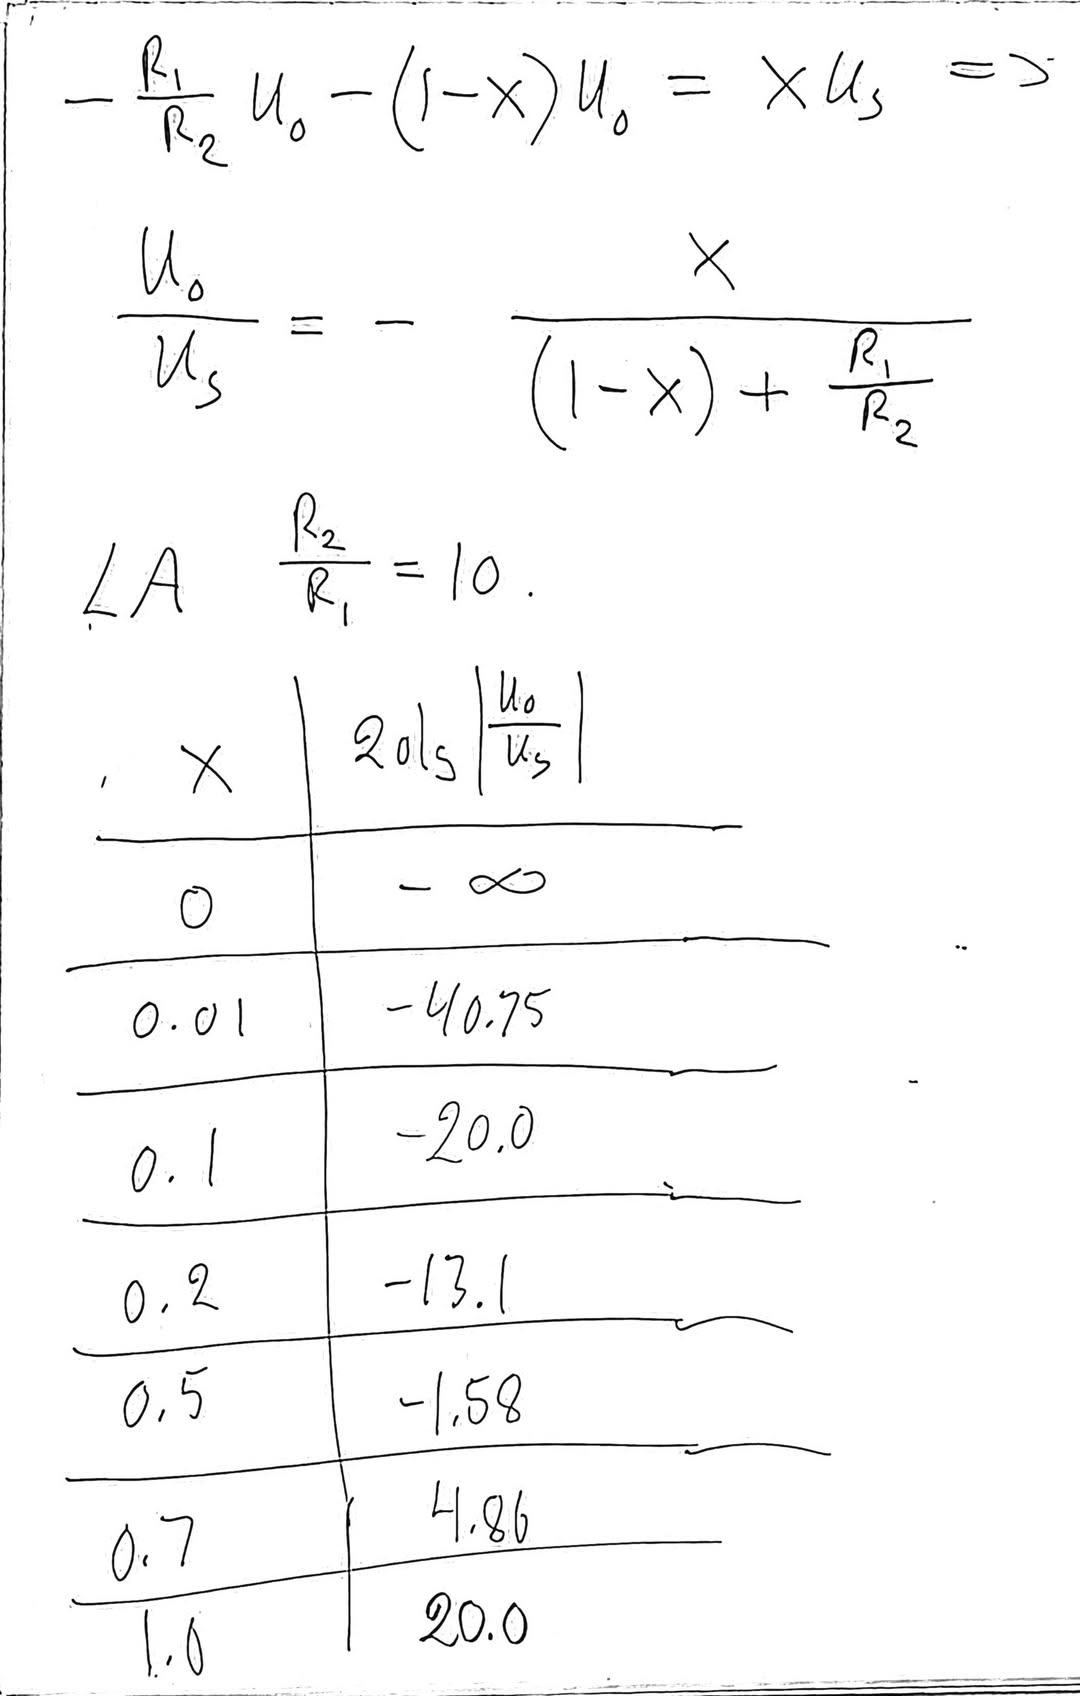 - R₁/R₂ U₀ - (1-x) U₀ = x Uₛ =>
U₀/Uₛ = - x/((1-x) + R₁/R₂)
LA R₂/R₁ = 10.
x | 20lg |U₀/Uₛ|
0 | - ∞
0.01 | -40.75
0.1 | -20.0
0.2 | -13.1
0.5 | -1.58
0.7 | 4.86
1.0 | 20.0